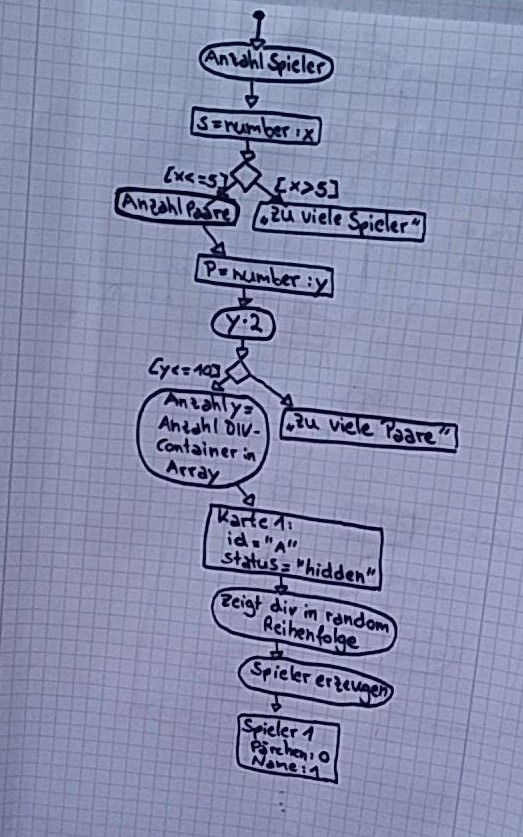 Anzahl Spieler
s=number:x
[x<=5] [x>5]
Anzahl Paare
„zu viele Spieler"
P=number:y
y·2
[y<=10]
Anzahl y=
Anzahl DIV-
Container in
Array
„zu viele Paare"
Karte 1:
id="A"
status="hidden"
zeigt div in random
Reihenfolge
Spieler erzeugen
Spieler 1
Pärchen:0
Name:1